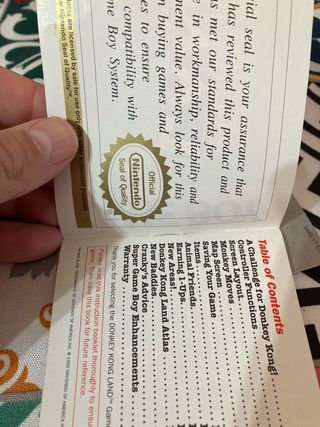 ial seal is your assurance that
has reviewed this product and
s met our standards for
e in workmanship, reliability and
ment value. Always look for this
n buying games and
es to ensure
compatibility with
me Boy System.
Official
Nintendo
Seal of Quality
ducts are licensed by sale for use only
Nintendo Seal of Quality.™
Table of Contents
A Challenge for Donkey Kong!
Controller Functions
Screen Layout
Monkey Moves
Map Screen
Saving Your Game
Items
Animal Friends
Earning 1-Ups
New Areas!
Donkey Kong Land Atlas
New Baddies
Cranky's Advice
Super Game Boy Enhancements
Warranty
Thank you for selecting the DONKEY KONG LAND™ Gam
Please read this instruction booklet thoroughly to ensu
game. Then save this book for future reference.
TM AND ® ARE TRADEMARKS OF NINTENDO OF AMERICA INC. © 1995 NINTENDO OF AMERICA IN